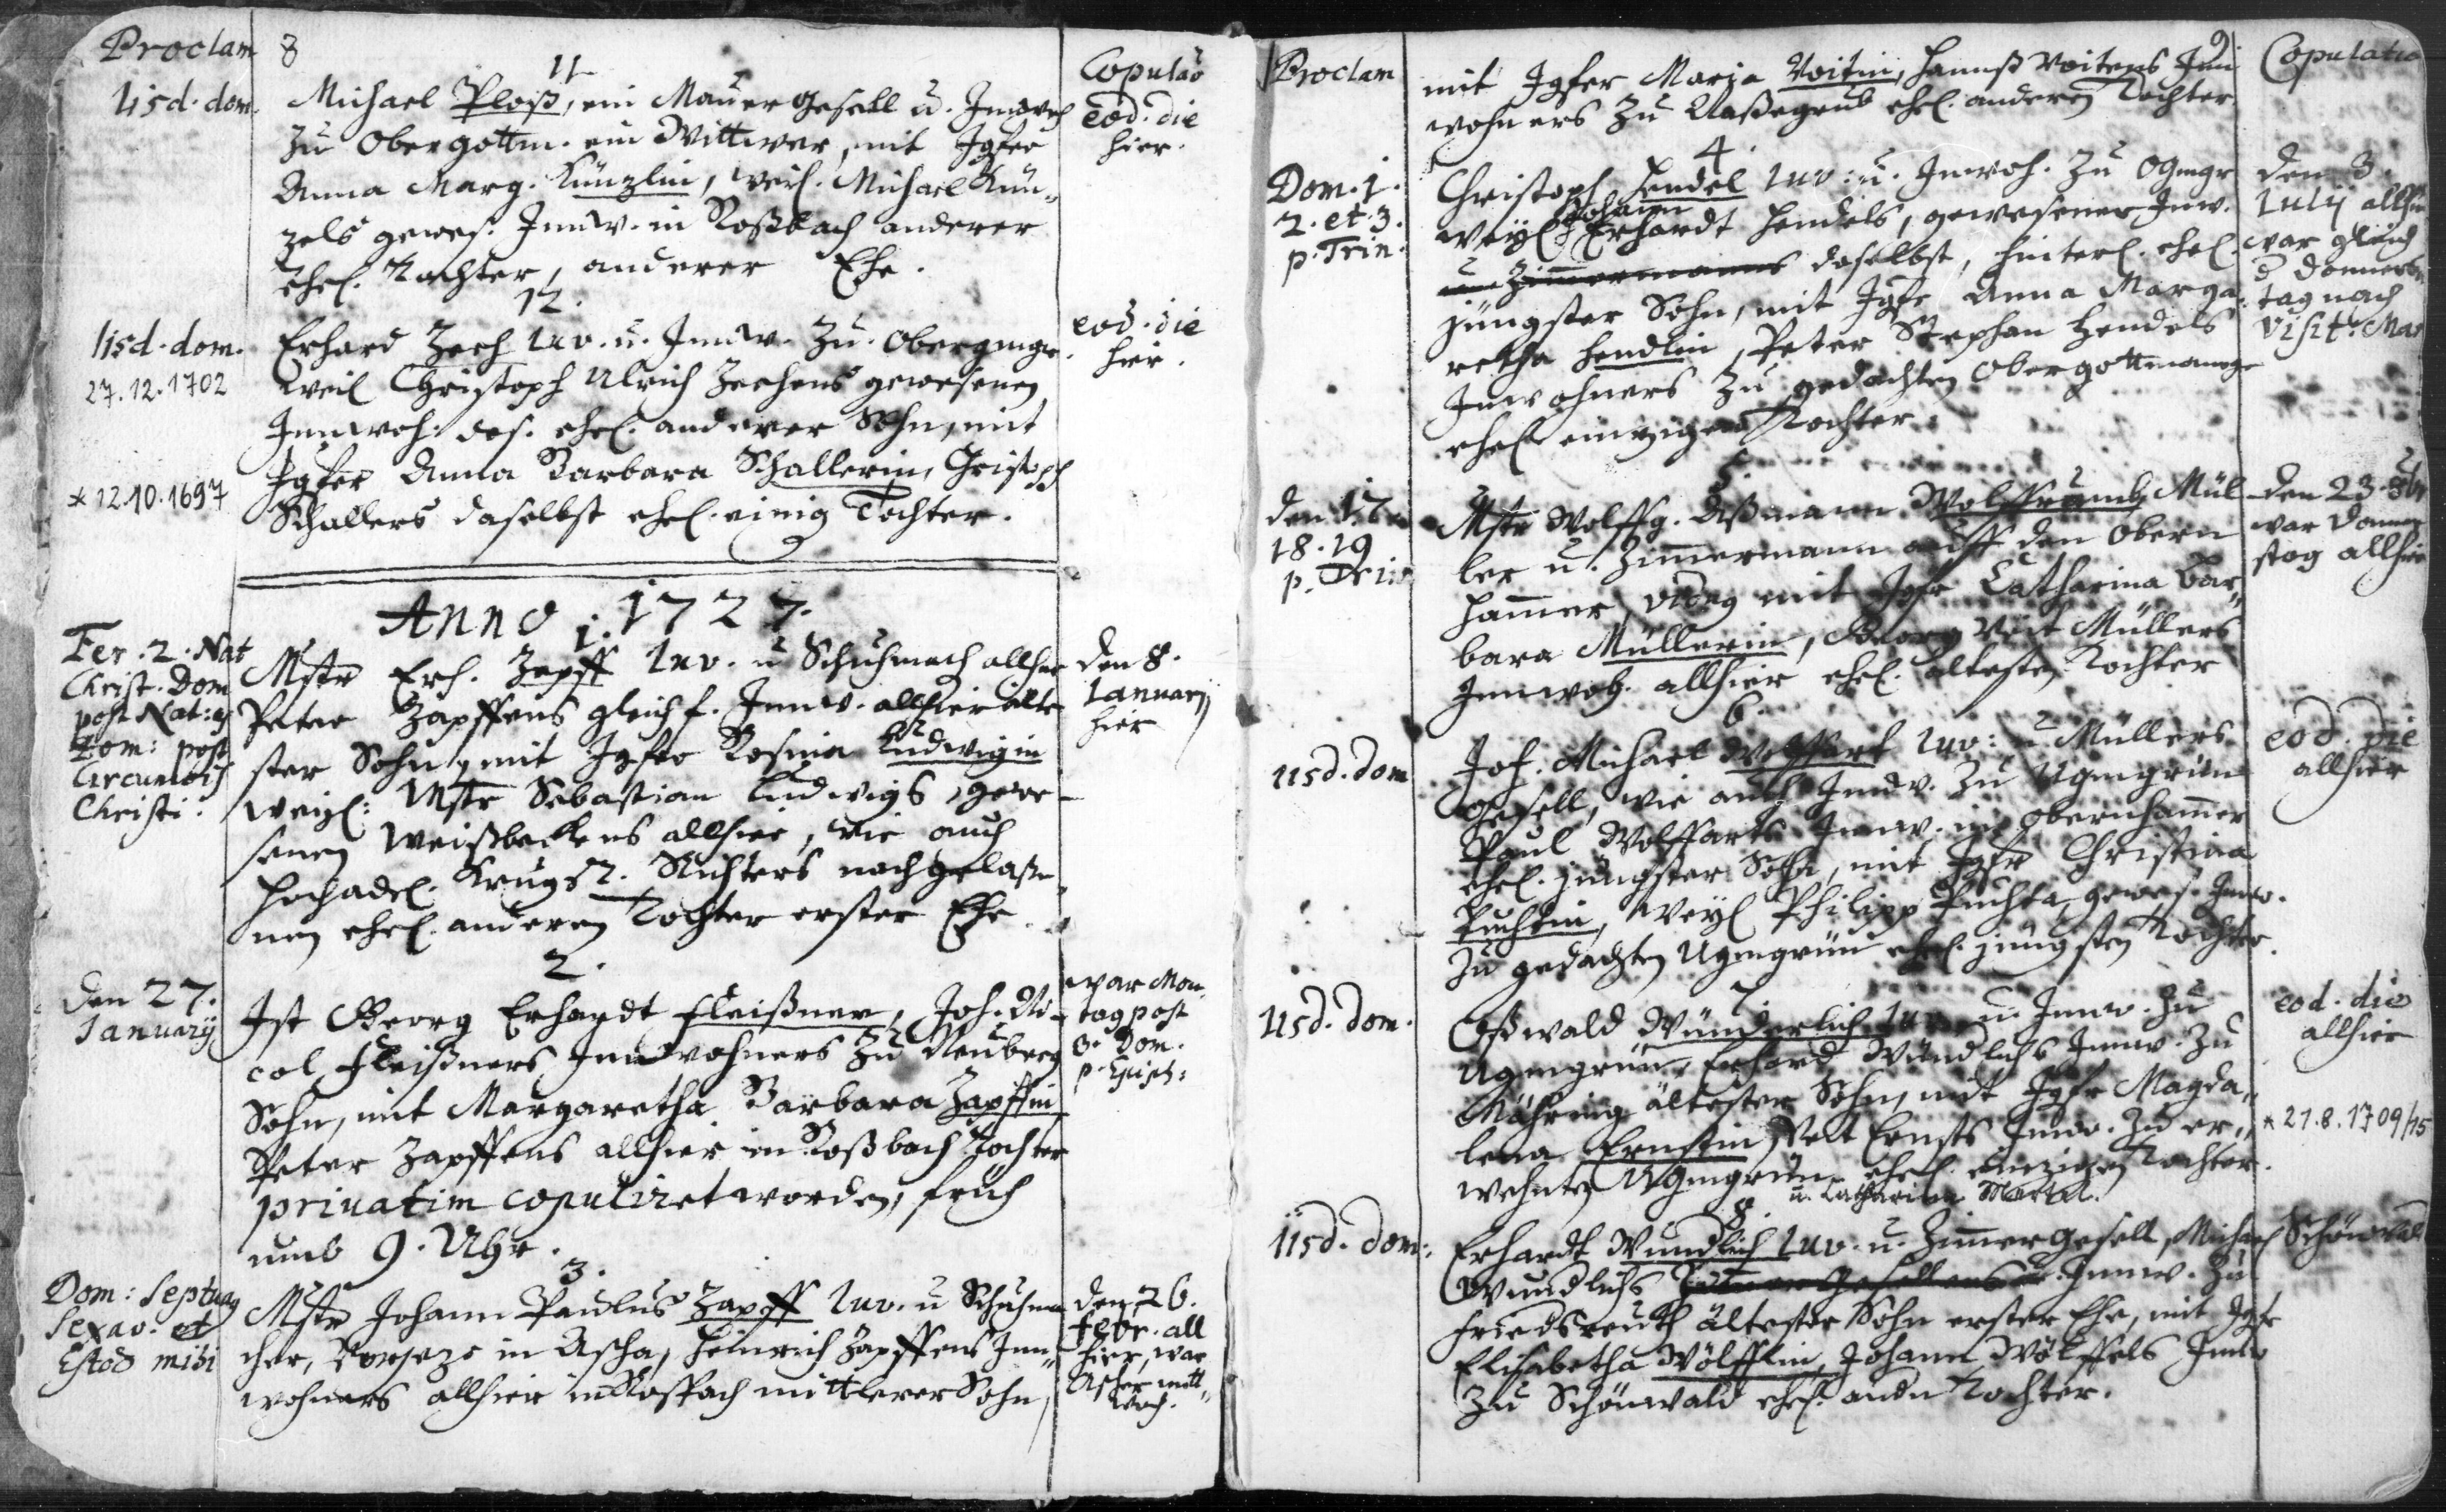 Proclam
8
Copulaõ
11
iisd. dom.
Michael Ploß, ein Maurer Gesell u. Innwoh
zu Obergottm. ein Wittwer, mit Jgfer
Anna Marg. Künzlin, weil. Michael Kün„
zels gewes. Innw. in Roßbach anderer
ehel. Tochter, anderer Ehe.
eod. die
hier.
12.
iisd. dom.
27.12.1702
* 12.10.1697
Erhard Zeeh Juv. u. Innw. zu Obergmgr.
weil Christoph Ulrich Zeehens gewesenen
Innwoh. das. ehel. anderer Sohn, mit
Jgfer Anna Barbara Schallerin, Christoph
Schallers daselbst ehel. einig Tochter.
eod. die
hier.
Anno 1727.
1.
Fer. 2. Nat
Christ. Dom
post Nat: et
Dom: post
Circumcis
Christi.
Mstr Erh. Zapff Juv. u Schuhmach allhier
Peter Zapffens gleichf. Innw. allhier älte
ster Sohn, mit Jgfer Rosina Ludwigin
weyl: Mstr Sebastian Ludwigs, gewe-
senen Weißbeckens allhier, wie auch
hochadel. Richters nachgelaße„
nen ehel. anderen Tochter erster Ehe.
den 8.
Januarij
hier
2.
den 27.
January
Ist Georg Erhardt Fleißner, Joh. Ni-
col Fleißners Innwohners zu Neuberg
Sohn, mit Margaretha Barbara Zapffin
Peter Zapffens allhier in Roßbach Tochter
privatim copuliret worden, früh
umb 9. Uhr.
war Mon„
tag post
3. Dom.
p. Epiph:
3.
Dom: Septuag
Sexag. et
Esto mihi
Mstr Johann Paulus Zapff Juv. u Schuhma
cher, in Ascha, Heinrich Zapffens Inn„
wohners allhier in Rossbach mittlerer Sohn,
den 26.
Febr. all
hier, war
Ascher mitt„
woch.
Proclam
9
Copulatio
mit Jgfer Maria Voitin, Hannß Voitens Inn
wohners zu ehel. anderen Tochter
4.
Dom. 1.
2. et. 3.
p. Trin:
Christoph Hendel Juv: u. Innwoh. zu OGmgr
Johann
weyl Erhardt Hendels, gewesener Inw.
und Zimmermanns daselbst, hinterl. ehel.
jüngster Sohn, mit Jgfr Anna Marga„
retha Hendlin, Peter Stephan Hendels
Innwohners zu gedachten Obergottmannsgr
ehel. einzigen Tochter.
den 3.
Julij allhier
war gleich
d Donners„
tag nach
Visit: Mar
5.
den 17.
18. 19
p. Trin
Mstr Wolffg. Aßmann Wolffrumb Mül
ler u. Zimmermann auff dem Obern
Hammer, mit Jgfr Catharina Bar„
bara Müllerin, Georg Veit Müllers
Innwoh. allhier ehel. ältesten Tochter
den 23.
war Donner
stag allhier
6.
iisd. dom
Joh. Michael Wolffart Juv: u Müllers
Gesell, wie auch Innw. zu Ugmgrün
Paul Wolffarts Innw. in Obernhammer
ehel. jüngster Sohn, mit Jgfr Christiana
Puchtin, weyl Philipp Puchta, gewes. Innw.
zu gedachten Ugmgrün ehel. jüngsten Tochter.
eod. die
allhier
7.
iisd. dom.
Oßwald Wunderlich Juv. u. Innw. zu
Ugmgrün, Erhard Wundlichs Innw. zu
Mähring ältester Sohn, mit Jgfr Magda„
lena Ernstin, Veit Ernsts Innw. zu er„
wehnten Ugmgrün ehel. einzigen Tochter.
u. Catharina Martel.
eod. die
allhier
* 21.8.1709/15
8.
iisd. dom:
Erhardt Wundlich Juv. u. Zimmer Gesell, Michael
Wundlichs Zimmer Gesellens u. Innw. zu
Friedreuth ältester Sohn erster Ehe, mit Jgfr
Elisabetha Wölfflin, Johann Wölffels Innw
zu Schönwald ehel. andn Tochter.
Schönwald